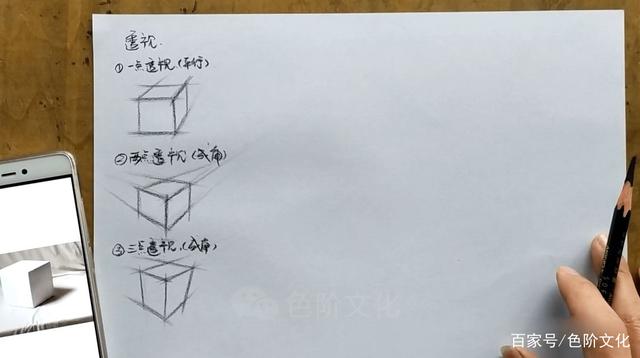 透视.
①一点透视(平行)
②两点透视(成角)
③三点透视(成角)
色阶文化
百家号/色阶文化